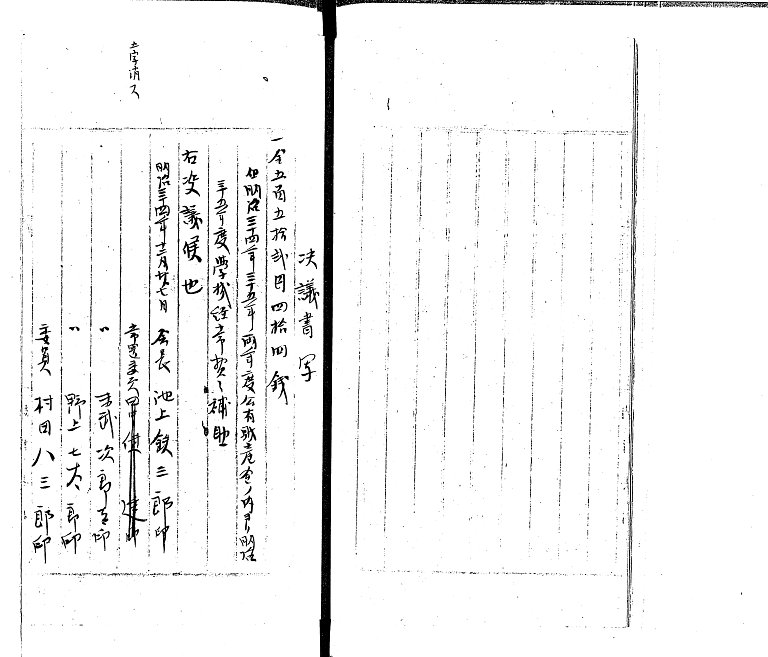 決議書写
一金五百五拾弐円四拾四銭
但明治三十四年三十五年両年度公有財産金ノ内ヨリ明治
三十五年度学校経常費ヘ補助
右决議候也
明治三十四年十二月廿七日 会長 池上鉄三郎印
常置委員
〃 次郎
〃 野上七太郎印
委員 村田八三郎印
五字消ス